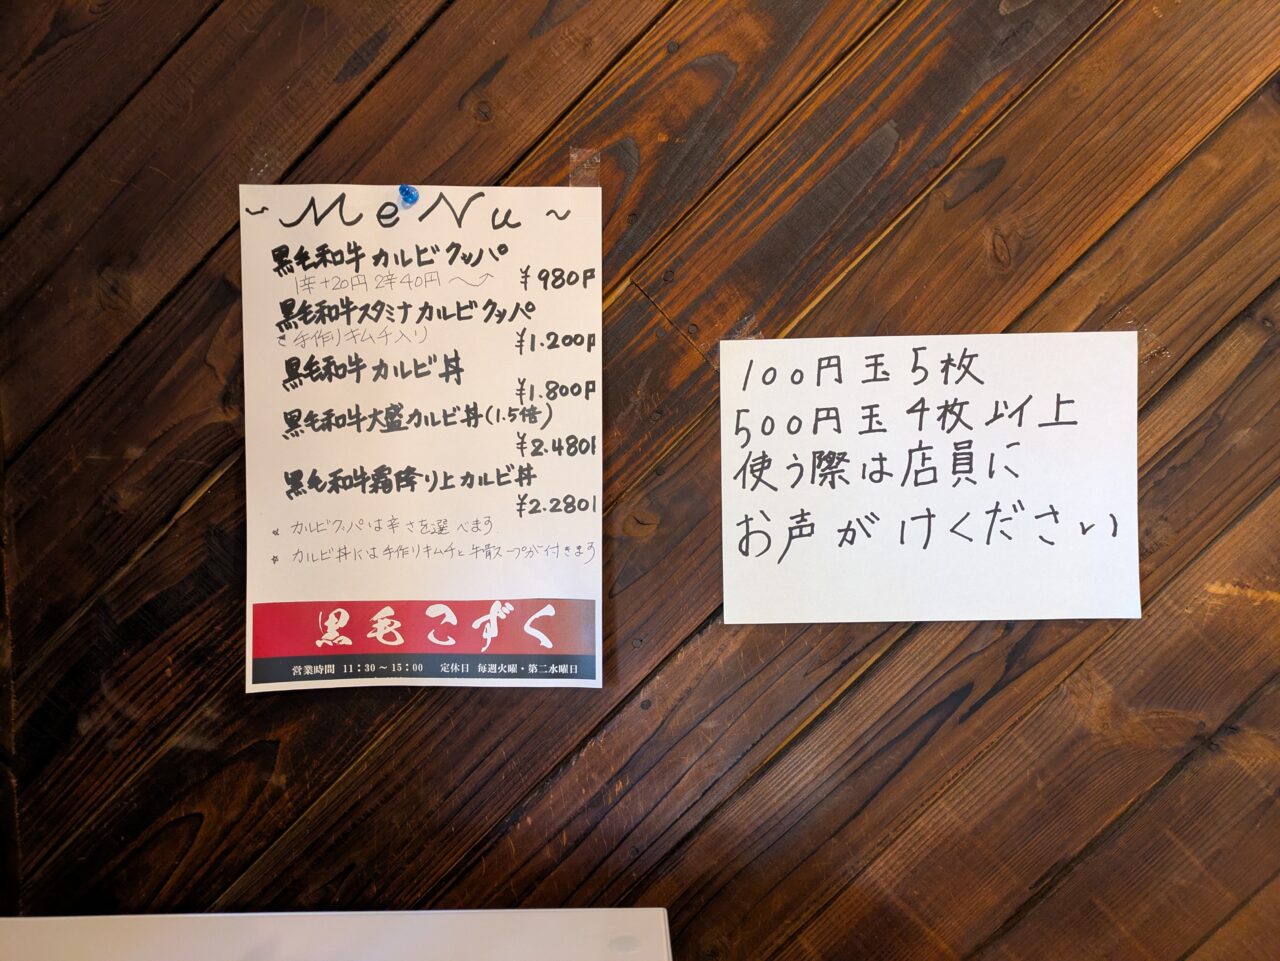 ~ MeNu ~
黒毛和牛カルビクッパ
1辛+20円 2辛40円 〜
¥980
黒毛和牛スタミナカルビクッパ
手作りキムチ入り
¥1.200
黒毛和牛カルビ丼
¥1.800
黒毛和牛大盛カルビ丼(1.5倍)
¥2.480
黒毛和牛霜降り上カルビ丼
¥2.280
カルビクッパは辛さを選べます
カルビ丼には手作りキムチと牛骨スープが付きます
黒毛こずく
営業時間 11:30～15:00 定休日 毎週火曜・第二水曜日
100円玉5枚
500円玉4枚以上
使う際は店員に
お声がけください